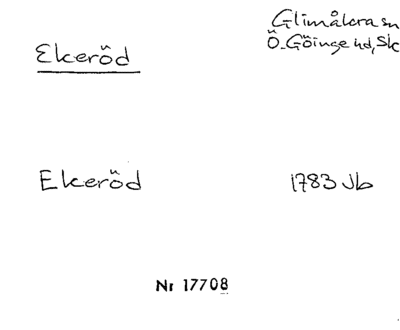 Ekeröd
Glimåkra sn
Ö. Göinge hd, Sk
Ekeröd
1783 Jb
Nr 17708